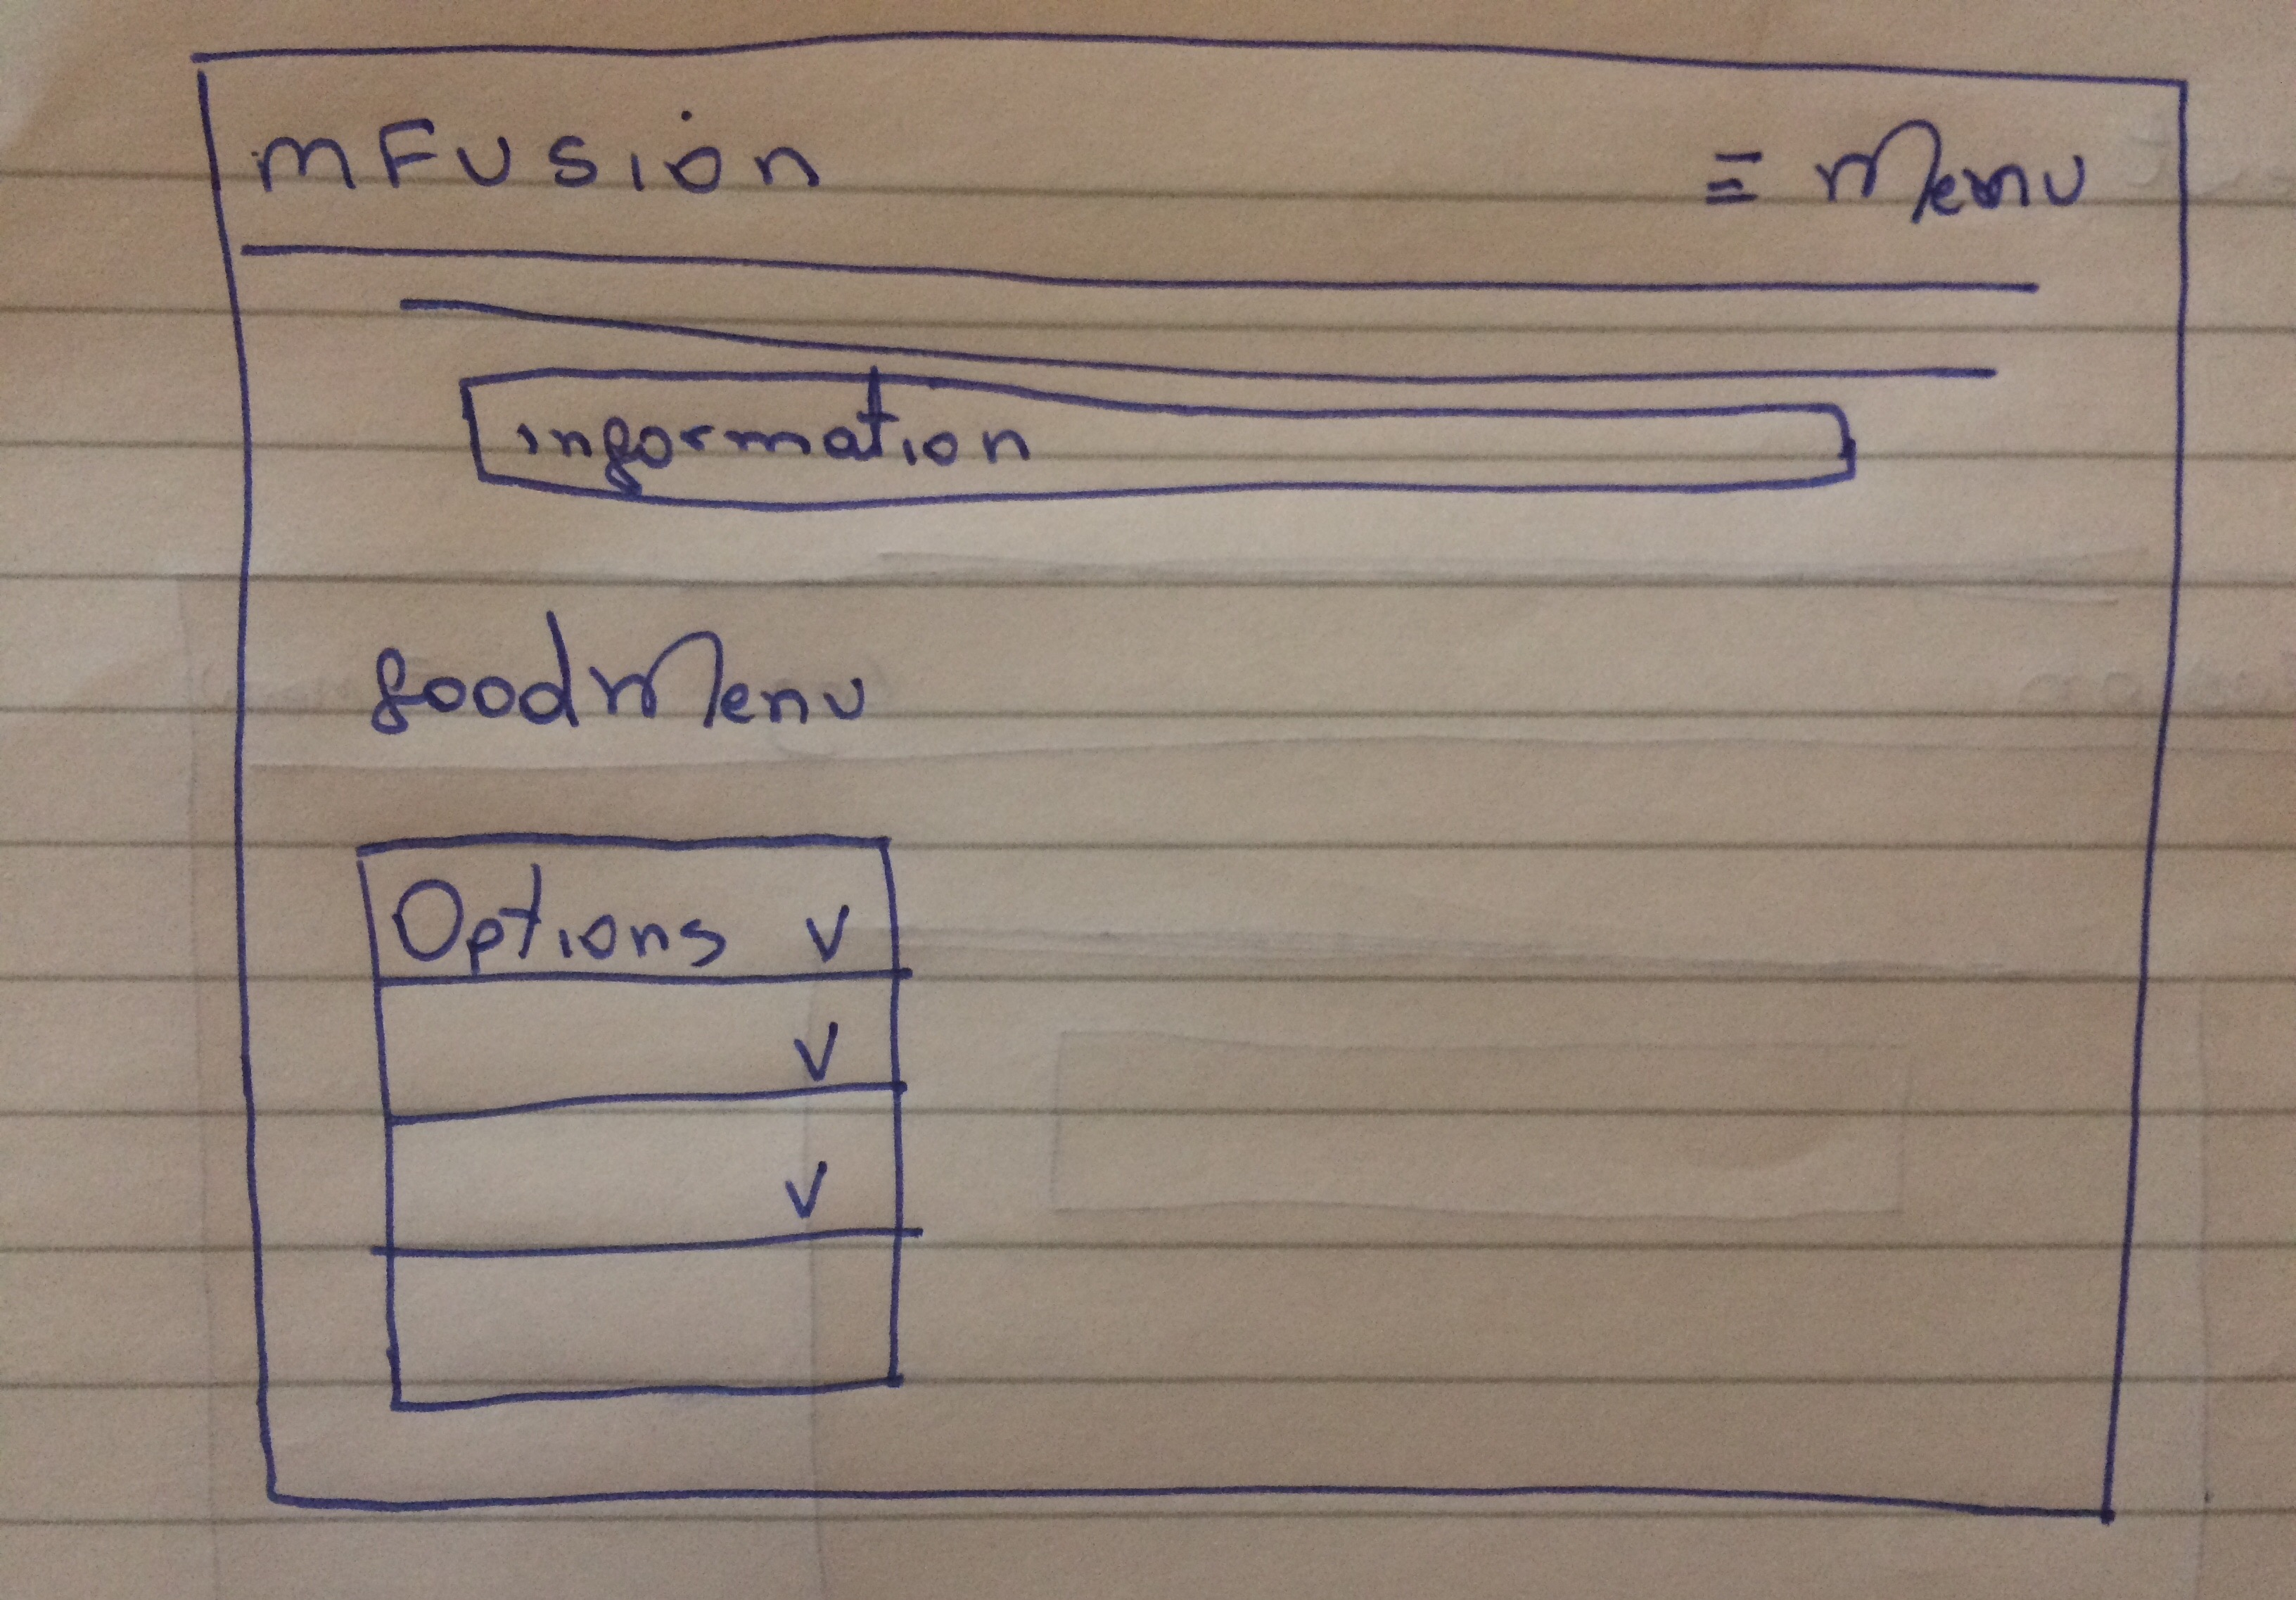 mFusion ≡ Menu
information
foodMenu
Options v
v
v